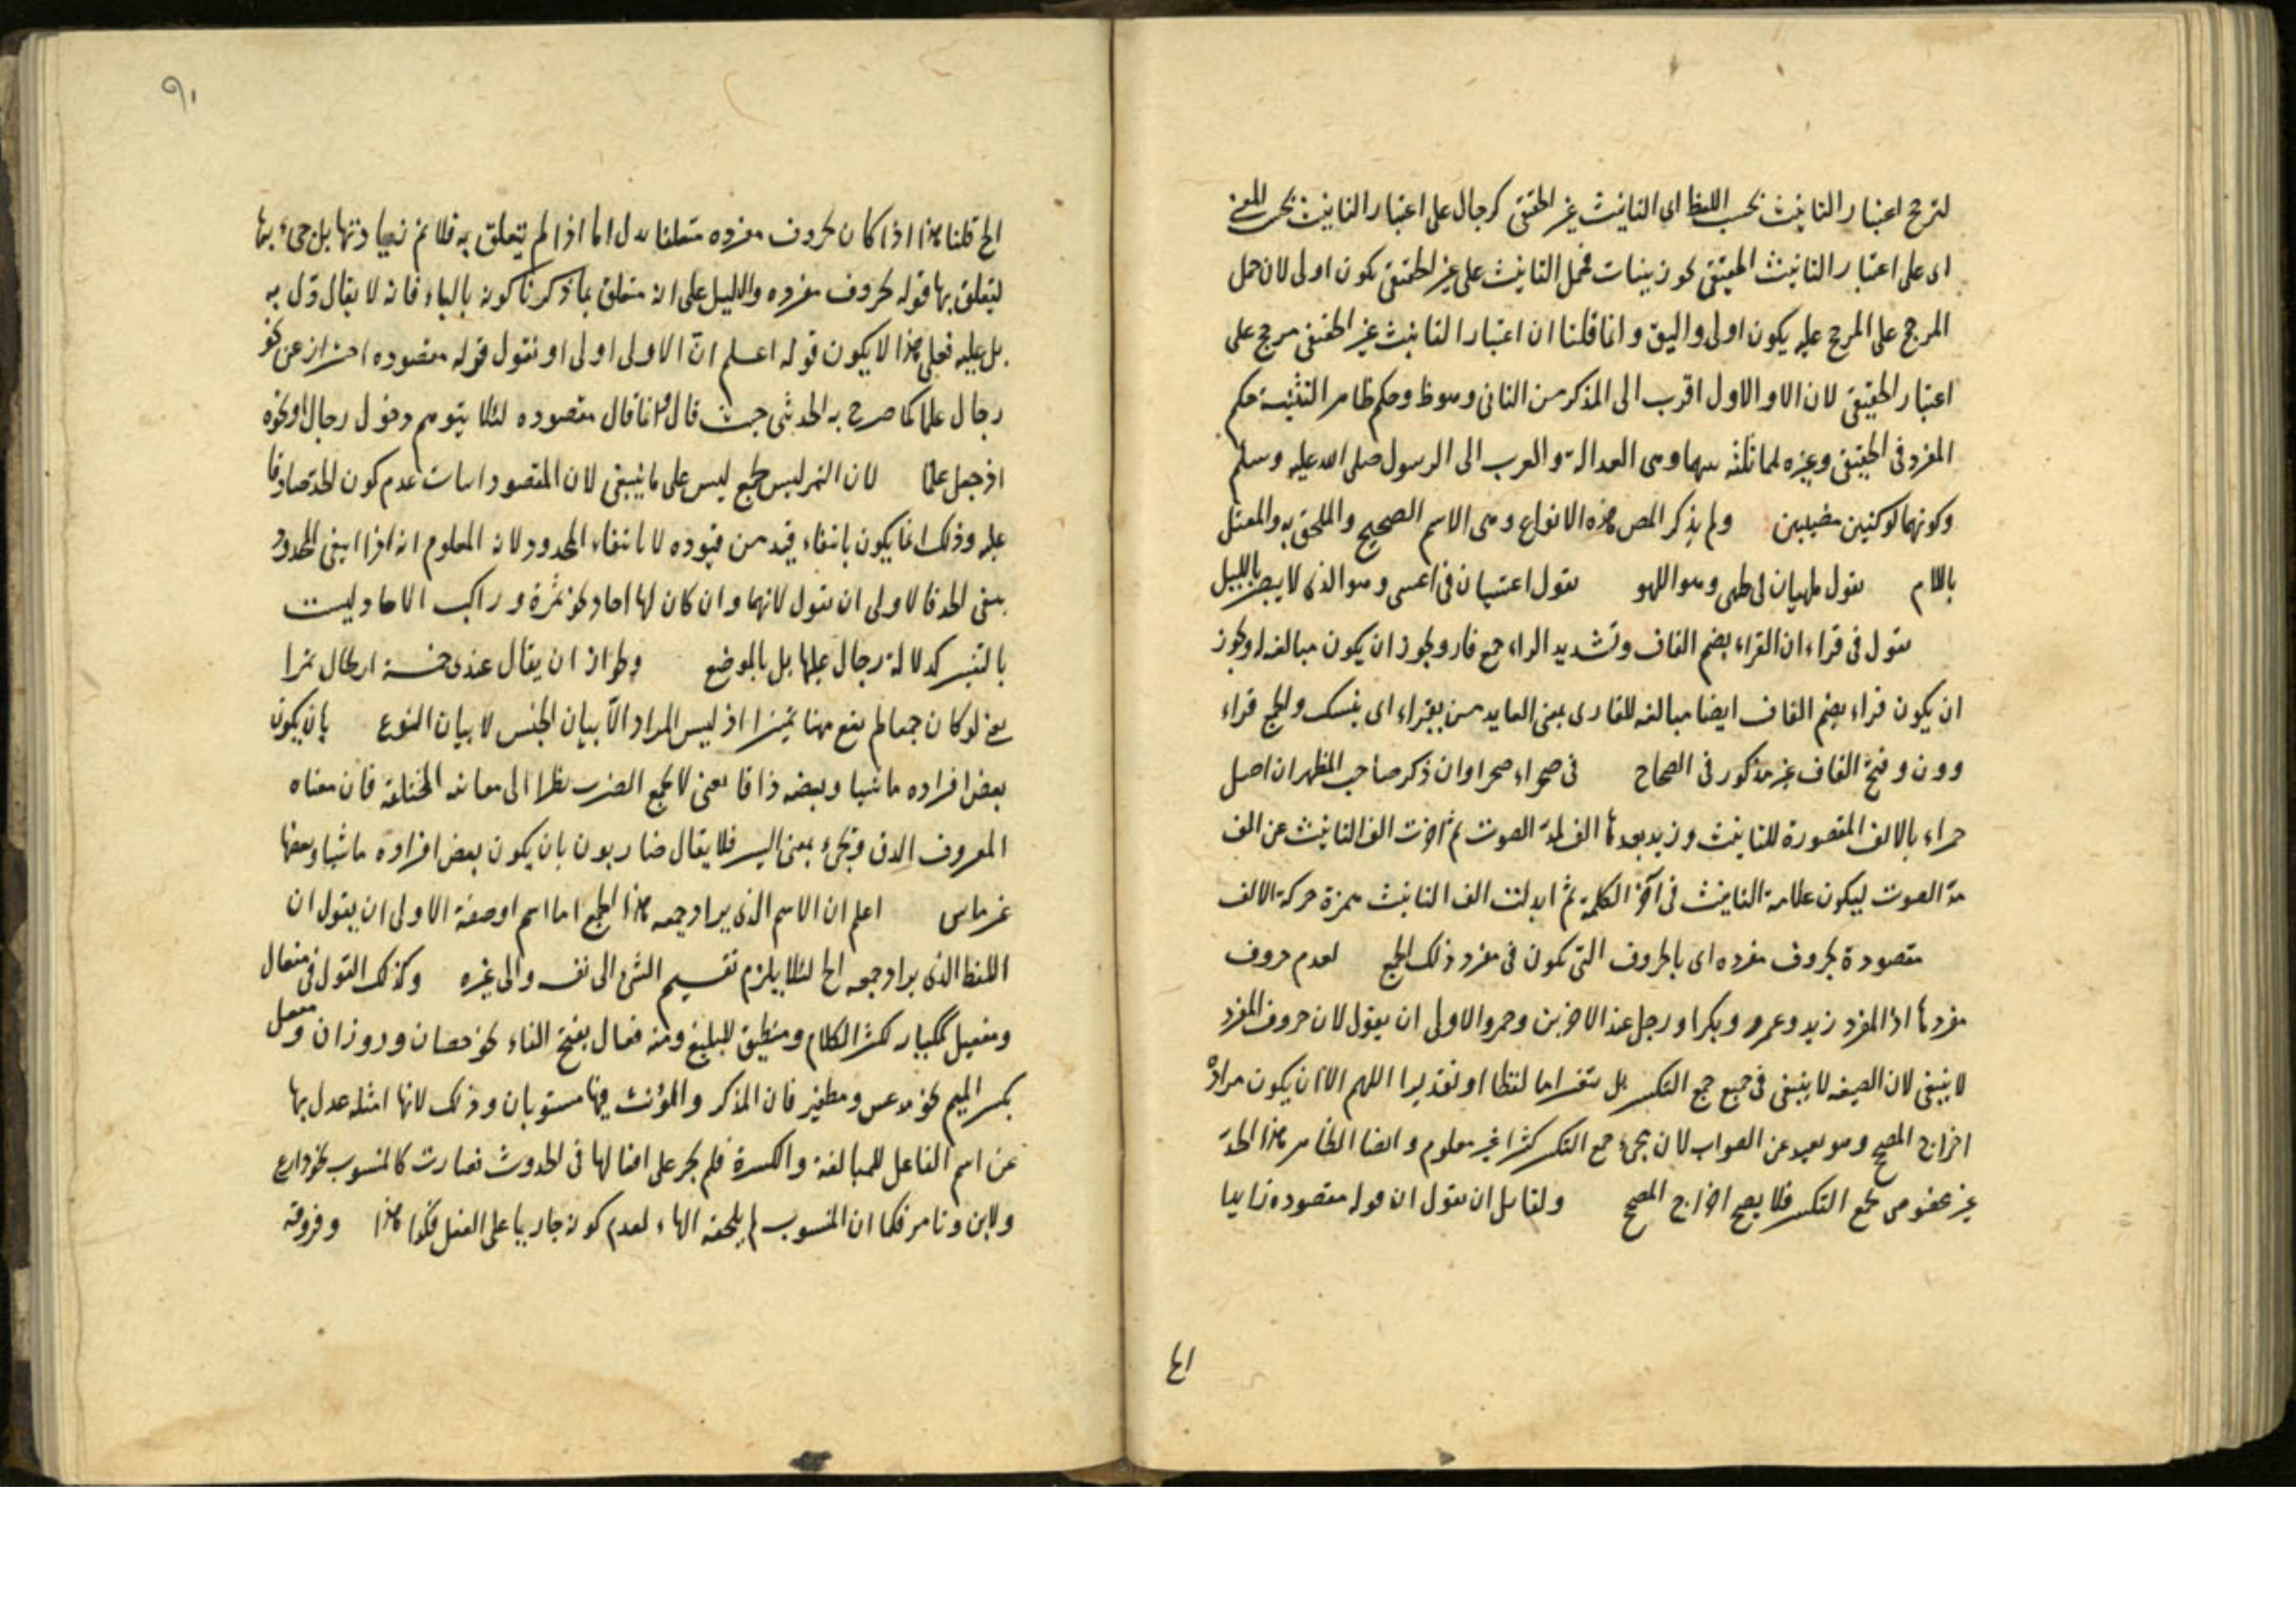 لترجح اعتبار التانيث بحسب اللفظ اى التانيث غير الحقيقى كرجال على اعتبار التانيث بحسب المعنى
اى على اعتبار التانيث الحقيقى نحو زينبات فحمل التانيث على غير الحقيقى يكون اولى لان حمل
المرجح على المرجح عليه يكون اولى واليق وانما قلنا ان اعتبار التانيث غير الحقيقى مرجح على
اعتبار الحقيقى لان الاول اقرب الى المذكر من الثانى وحكم ظاهر التثنية حكم
المفرد فى الحقيقى وغيره وهى العدالة والعرب الى الرسول صلى الله عليه وسلم
وكونهما ولم يذكر المص هذه الانواع وهى الاسم الصحيح والملحق به والمعتل
باللام تقول طهيان وهو اللهو تقول اعشيان فى اعشى وهو الذى لا يبصر بالليل
تقول فى قراءان القراء بضم القاف وتشديد الراء جمع قار ويجوز ان يكون مبالغة او يجوز
ان يكون قراء بضم القاف ايضا مبالغة للقارى بمعنى العابد من يقراء اى ينسك والجمع قراء
وون وفتح القاف غير مذكور فى الصحاح فى صحراء صحراوان ذكر صاحب المظهر ان اصل
حمراء بالالف المقصورة للتانيث وزيد بعدها الف لمد الصوت ثم اخرت الف التانيث عن الف
مد الصوت ليكون علامة التانيث فى آخر الكلمة ثم ابدلت الف التانيث همزة حركة الالف
مقصودة بحروف مفرده اى بالحروف التى تكون فى مفرد ذلك الجمع لعدم حروف
مفردها اذ المفرد زيد وعمرو وبكر او رجل عند الاخرين وحمر والاولى ان يقول لان حروف المفرد
لا ينبغى لان الصيغه لا ينبغى فى جميع جمع التكسير بل يتغير اما لفظا او تقديرا اللهم الا ان يكون مراده
اخراج المصحح وهو بعيد عن الصواب لان مجىء جمع التكسير كثيرا غير معلوم وايضا الظاهر هذا الحد
غير مخصوص بجمع التكسير فلا يصح اخراج المصحح ولقائل ان يقول ان قوله مقصوده زايدا
الخ
الخ قلنا هذا اذا كان بحروف مفرده متعلقا بدل اما اذا لم يتعلق به فلا ثم زيادتها بل جىء بها
ليتعلق بها قوله بحروف مفرده والدليل على انه متعلق بما ذكرنا كونه بالباء فانه لا يقال دل به
بل عليه فعلى هذا لا يكون قوله اعلم ان الاولى اولى او نقول قوله مقصوده احتراز عن نحو
رجال علما كما صرح به الحديثى حيث قال وانما قال مقصوده لئلا يتوهم دخول رجال ونحوه
اذ جعل علما لان التمر ليس بجمع ليس على ما ينبغى لان المقصود اثبات عدم كون الحد صادقا
عليه وذلك انما يكون بانتفاء قيد من قيوده لا بانتفاء المحدود لانه المعلوم انه اذا انتفى المحدود
ينتفى الحد فالاولى ان نقول لانهما وان كان لها احاد نحو تمرة وراكب الاحاد وليست
بالتغيير كدلالة رجال عليها بل بالوضع وجواز ان يقال عندى خمسة ارطال تمرا
يعنى لو كان جمعا لم يقع ههنا تميزا اذ ليس المراد الا بيان الجنس لا بيان النوع بان يكون
بعض افراده ماشيا وبعضه ذاقا يعنى لا يجمع الضرب نظرا الى معانيه المختلفة فان معناه
المعروف الدق ويجىء بمعنى السير فلا يقال ضاربون بان يكون بعض افراده ماشيا وبعضها
غير ماش اعلم ان الاسم الذى يراد جمعه هذا الجمع اما اسم او صفة الاولى ان يقول ان
اللفظ الذى يراد جمعه الخ لئلا يلزم تقسيم الشىء الى نفسه والى غيره وكذلك القول فى مفعال
ومفعيل كمكثار لكثر الكلام ومنطيق للبليغ ومنه فعال بفتح الفاء نحو حصان ورزان ومفعل
بكسر الميم نحو مدعس ومطعن فان المذكر والمؤنث فيها مستويان وذلك لانها امثله عدل بها
عن اسم الفاعل للمبالغة والكثرة فلم يجر على افعالها فى الحدوث فصارت كالمنسوب نحو دارع
ولابن وتامر فكما ان المنسوب لم يلحقه الهاء لعدم كونه جاريا على الفعل فكذا هذا وفروقه
٩٠